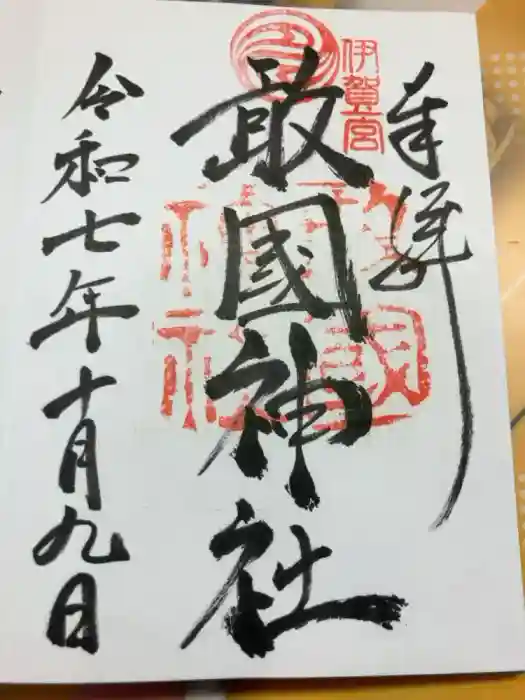 奉拝
伊賀一宮
敢國神社
令和七年十月九日